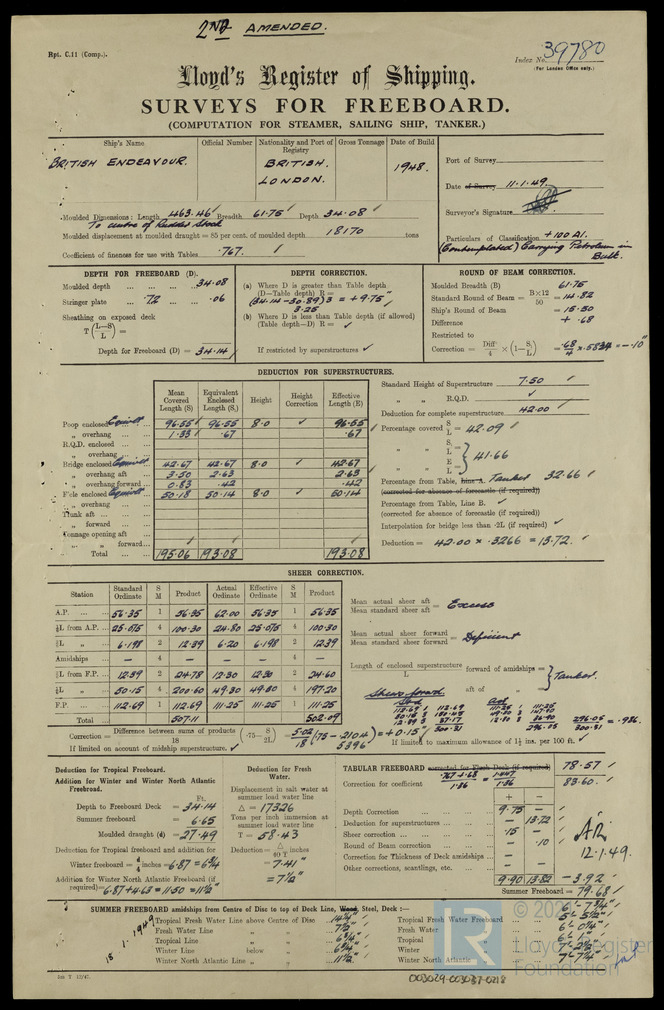 2ND AMENDED.
Rpt. C.11 (Comp.).
Index No. 39780
(For London Office only.)
Lloyd's Register of Shipping.
SURVEYS FOR FREEBOARD.
(COMPUTATION FOR STEAMER, SAILING SHIP, TANKER.)
Ship's Name Official Number Nationality and Port of Registry Gross Tonnage Date of Build
BRITISH ENDEAVOUR. BRITISH. LONDON. 1948.
Port of Survey
Date of Survey 11.1.49.
Surveyor's Signature
Particulars of Classification +100A1.
(Contemplated) Carrying Petroleum in Bulk.
Moulded Dimensions: Length 463.46 Breadth 61.75 Depth 34.08
To centre of Rudder Stock
Moulded displacement at moulded draught = 85 per cent. of moulded depth 18170 tons
Coefficient of fineness for use with Tables .767.
DEPTH FOR FREEBOARD (D).
Moulded depth 34.08
Stringer plate .72 .06
Sheathing on exposed deck
T (L-S/L) =
Depth for Freeboard (D) = 34.14
DEPTH CORRECTION.
(a) Where D is greater than Table depth
(D-Table depth) R =
(34.14-30.89)3 = +9.75"
3.25
(b) Where D is less than Table depth (if allowed)
(Table depth-D) R =
If restricted by superstructures
ROUND OF BEAM CORRECTION.
Moulded Breadth (B) 61.75
Standard Round of Beam = B×12/50 = 14.82
Ship's Round of Beam = 15.50
Difference + .68
Restricted to
Correction = Diff/4 × (1-S₁/L) = .68/4 × .5834 = -.10"
DEDUCTION FOR SUPERSTRUCTURES.
Mean Covered Length (S) Equivalent Enclosed Length (S₁) Height Height Correction Effective Length (E)
Poop enclosed Equivlt 96.55 96.55 8.0 96.55
„ overhang 1.33 .67 .67
R.Q.D. enclosed
„ overhang
Bridge enclosed Equivlt 42.67 42.67 8.0 42.67
„ overhang aft 3.50 2.63 2.63
„ overhang forward 0.83 .42 .42
F'cle enclosed Equivlt 50.18 50.14 8.0 50.14
„ overhang
Trunk aft
„ forward
Tonnage opening aft
„ „ forward
Total 195.06 193.08 193.08
Standard Height of Superstructure 7.50
„ „ R.Q.D.
Deduction for complete superstructure 42.00
Percentage covered S/L = 42.09
„ „ S₁/L =
„ „ E/L = 41.66
Percentage from Table, Line A. Tanker 32.66
(corrected for absence of forecastle (if required))
Percentage from Table, Line B.
(corrected for absence of forecastle (if required))
Interpolation for bridge less than ·2L (if required)
Deduction = 42.00 × .3266 = 13.72.
SHEER CORRECTION.
Station Standard Ordinate S M Product Actual Ordinate Effective Ordinate S M Product
A.P. 56.35 1 56.35 62.00 56.35 1 56.35
⅙L from A.P. 25.075 4 100.30 24.80 25.075 4 100.30
⅓L „ 6.198 2 12.39 6.20 6.198 2 12.39
Amidships - 4 - - - 4 -
⅓L from F.P. 12.39 2 24.78 12.30 12.30 2 24.60
⅙L „ 50.15 4 200.60 49.30 49.30 4 197.20
F.P. 112.69 1 112.69 111.25 111.25 1 111.25
Total 507.11 502.09
Mean actual sheer aft / Mean standard sheer aft = Excess
Mean actual sheer forward / Mean standard sheer forward = Deficient
Length of enclosed superstructure / L forward of amidships =
„ „ aft of „ = Tanker.
Sheer forward
Correction = Difference between sums of products / 18 (·75 - S/2L) = 5.02/18 (.75-.2104) = +0.15"
.5396
If limited on account of midship superstructure.
If limited to maximum allowance of 1½ ins. per 100 ft.
296.05 / 300.31 = .986.
Deduction for Tropical Freeboard.
Addition for Winter and Winter North Atlantic Freeboard.
Ft.
Depth to Freeboard Deck = 34.14
Summer freeboard = 6.65
Moulded draught (d) = 27.49
Deduction for Tropical freeboard and addition for
Winter freeboard = d/4 inches = 6.87 = 6¾"
Addition for Winter North Atlantic Freeboard (if required) = 6.87+4.63 = 11.50 = 11½"
Deduction for Fresh Water.
Displacement in salt water at summer load water line
△ = 17326
Tons per inch immersion at summer load water line
T = 58.43
Deduction = △/40T inches
= 7.41"
= 7½"
TABULAR FREEBOARD corrected for Flush Deck (if required) 78.57
Correction for coefficient .767+.68/1.36 = 1.447/1.36 83.60.
+ -
Depth Correction 9.75 -
Deduction for superstructures - 13.72
Sheer correction .15 -
Round of Beam correction - .10
Correction for Thickness of Deck amidships - -
Other corrections, scantlings, etc. - -
9.90 13.82 -3.92
Summer Freeboard = 79.68
12.1.49.
SUMMER FREEBOARD amidships from Centre of Disc to top of Deck Line, Wood, Steel, Deck :— 6'-7¾"
Tropical Fresh Water Line above Centre of Disc 14¼" Tropical Fresh Water Freeboard 5'-5½"
Fresh Water Line „ „ 7½" Fresh Water „ 6'-0¼"
Tropical Line „ „ 6¾" Tropical „ 6'-1"
Winter Line below „ 6¾" Winter „ 7'-2½"
Winter North Atlantic Line „ „ 11½" Winter North Atlantic „ 7'-7¼"
18.1.1949
1m T 12/47.
003029-003037-0218
LR
© 2021
Lloyd's Register
Foundation